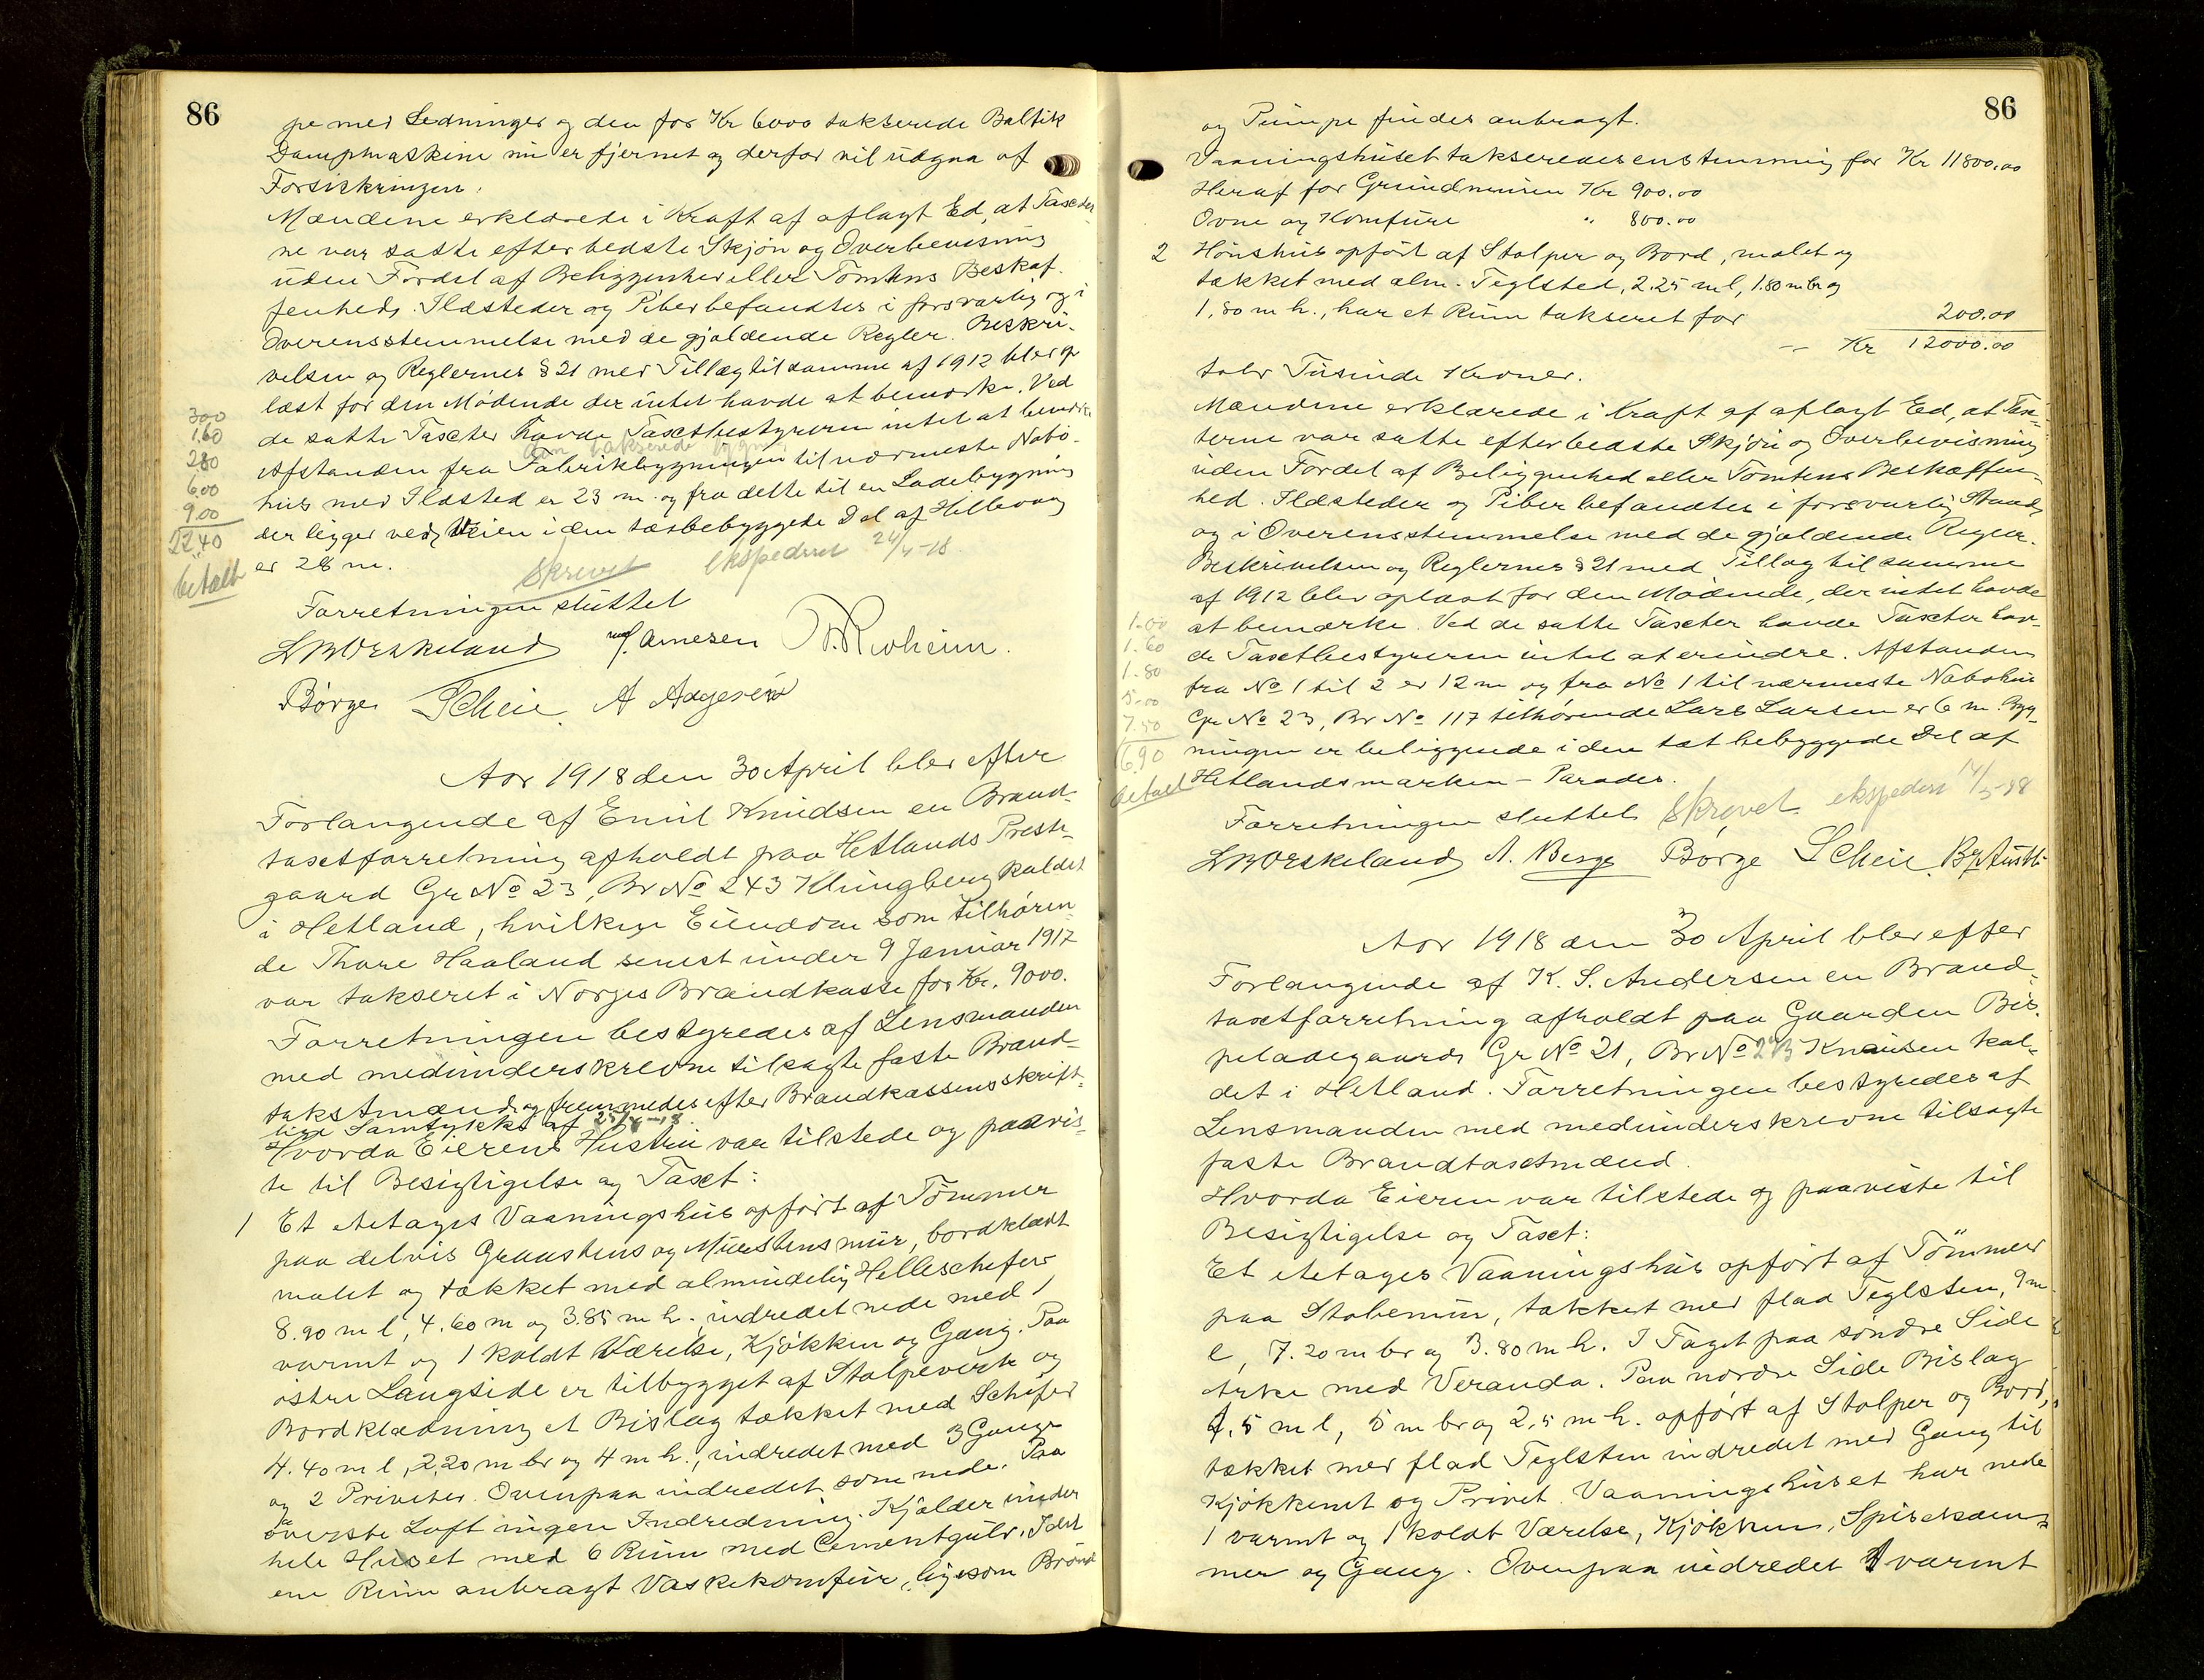 86
pe med Ledninger og den for Kr 6000 takserede Baltik
Dampmaskine nu er fjernet og derfor vil udgaa af
Forsikringen.
Mændene erklærede i Kraft af aflagt Ed, at Taxter
ne var satte efter bedste Skjøn og Overbevisning
uden Fordel af Beliggenhed eller Tomtens Beskaf-
fenhed. Ildsteder og Piber befandtes i forsvarlig og i
Overensstemmelse med de gjældende Regler. Beskri-
velsen og Reglernes § 21 med Tillæg til samme af 1912 blev op
læst for den Mødende der intet havde at bemærke. Ved
de satte Taxter havde Taxtbestyreren intet at bemærke
den takserede bygn
Afstanden fra Fabrikbygningen til nærmeste Nabo-
hus med Ildsted er 23 m. og fra dette til en Ladebygning
der ligger ved Veien i den tætbebyggede Del af Hillevaag
er 28 m.
300
1.60
280
600
900
22.40
betalt
skrevet ekspederet 24/4-18
Forretningen sluttet
L M Orskeland M. Arnesen
Børge Scheie A Aagesen
Aar 1918 den 30 April blev efter
Forlangende af Emil Knudsen en Brand-
taxtforretning afholdt paa Hetlands Preste-
gaard Gr No 23, Br No 243 Klungberg kaldet
i Hetland, hvilken Eiendom som tilhøren-
de Thore Haaland senest under 9 Januar 1917
var takseret i Norges Brandkasse for Kr. 9000.
Forretningen bestyredes af Lensmanden
med medunderskrevne tilsagte faste Brand-
takstmænd og fremmedes efter Brandkassens skrift-
lige Samtykke af 25/4-18
Hvorda Eierens Hustru var tilstede og paavis-
te til Besigtigelse og Taxt:
1 Et etetages Vaaningshus opført af Tømmer
paa delvis Graastens og Murstens mur, bordklædt
malet og tækket med almindelig Helleschifer
8.90 m l, 4.60 m og 3.85 m h., indredet nede med 1
varmt og 1 koldt Værelse, Kjøkken og Gang. Paa
østre Langside er tilbygget af Stolpeverk og
Bordklædning et Bislag tækket med Schifer
4.40 m l, 2.20 m br og 4 m h., indredet med 3 Gange
og 2 Priveter. Ovenpaa indredet som nede. Paa
øverste Loft ingen Indredning. Kjælder under
hele Huset med 6 Rum med Cementgulv. I det
ene Rum anbragt Vaskekomfur, ligesom Brønd
86
og Pumpe findes anbragt.
Vaaningshuset takseredes enstemmig for Kr 11800.00
Heraf for Grundmuren Kr 900.00
Ovne og Komfure " 800.00
2 Hønshus opført af Stolper og Bord, malet og
tækket med alm. Teglsted, 2.25 m l, 1.80 m br og
1.80 m h., har et Rum takseret for 200.00
Kr 12000.00
tolv Tusinde Kroner.
Mændene erklærede i Kraft af aflagt Ed, at Tax-
terne var satte efter bedste Skjøn og Overbevisning
uden Fordel af Beliggenhed eller Tomtens Beskaffen-
hed. Ildsteder og Piber befandtes i forsvarlig Stand
og i Overensstemmelse med de gjældende Regler.
Beskrivelsen og Reglernes § 21 med Tillæg til samme
af 1912 blev oplæst for den Mødende, der intet havde
at bemærke. Ved de satte Taxter havde Taxter hav-
de Taxtbestyreren intet at erindre. Afstanden
fra No 1 til 2 er 12 m og fra No 1 til nærmeste Nabohus
Gr No 23, Br No 117 tilhørende Lars Larsen er 6 m. Byg-
ningen er beliggende i den tæt bebyggede Del af
Hetlandsmarken - Parades.
1.00
1.60
1.80
5.00
7.50
16.90
betalt
Forretningen sluttet skrevet ekspederet 14/5-18
L M Orskeland A. Berge Børge Scheie
Aar 1918 den 30 April blev efter
Forlangende af K. S. Andersen en Brand-
taxtforretning afholdt paa Gaarden Bis-
peladegaard Gr No 21, Br No 243 Knausen kal-
det i Hetland. Forretningen bestyredes af
Lensmanden med medunderskrevne tilsagte
faste Brandtaxtmænd.
Hvorda Eieren var tilstede og paaviste til
Besigtigelse og Taxt:
Et etetages Vaaningshus opført af Tømmer
paa Stobemur, tækket med flad Teglsten, 9 m
l, 7.20 m br og 3.80 m h. I Taget paa søndre Side
Arke med Veranda. Paa nordre Side Bislag
1.5 m l, 5 m br og 2.5 m h. opført af Stolper og Bord,
tækket med flad Teglsten indredet med Gang til
Kjøkkenet og Privet. Vaaningshuset har nede
1 varmt og 1 koldt Værelse, Kjøkken, Spiskam-
mer og Gang. Ovenpaa indredet 1 varmt